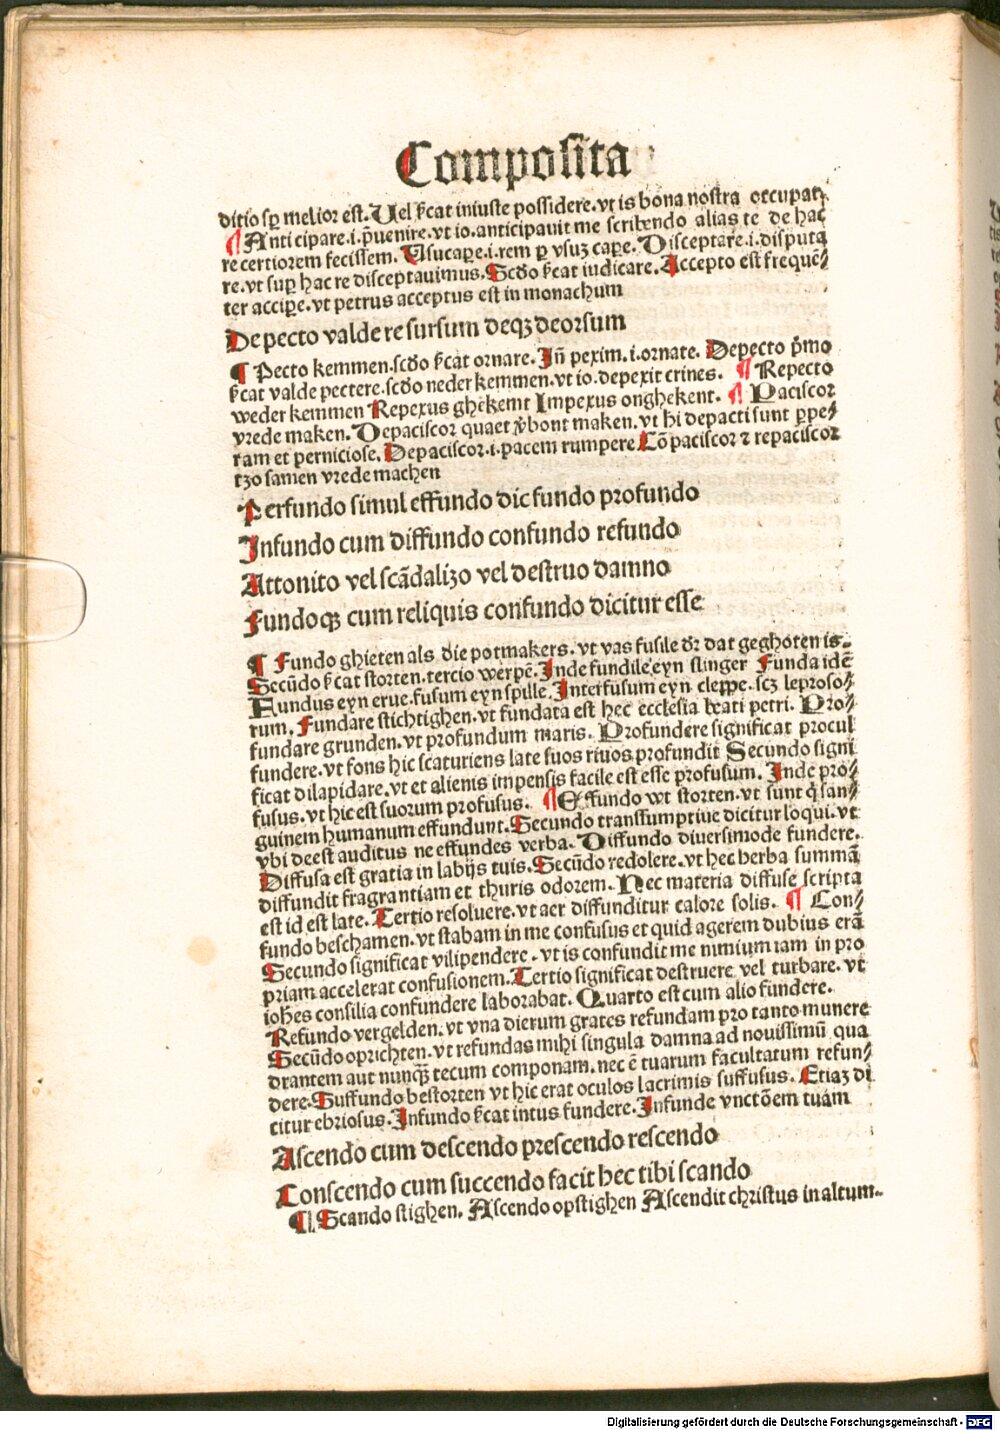 Composita
ditio sꝑ melior est. Uel ẜcat iniuste possidere. vt is bona nostra occupat.
¶ Anticipare .i. p̄uenire. vt io. anticipauit me scribendo alias te de hac
re certiorem fecissem. Usucapere .i. rem ꝑ vsuꝫ capere. Disceptare .i. disputa
re. vt suꝑ hac re disceptauimus. Scd̄o ẜcat iudicare. Accepto est frequē⸗
ter accipere. vt petrus acceptus est in monachum
De pecto valde re sursum deqꝫ deorsum
¶ Pecto kemmen. scd̄o ẜcat ornare. Jn̄ pexim .i. ornate. Depecto p̄mo
ẜcat valde pectere. scd̄o neder kemmen. vt io. depexit crines. ¶ Repecto
weder kemmen Repexus ghekemt Impexus onghekent. ¶ Paciscor
vrede maken. Depaciscor quaet v̄bont maken. vt hi depacti sunt ꝑpe⸗
ram et perniciose. Depaciscor .i. pacem rumpere Cō paciscor ⁊ repaciscor
tzo samen vrede machen
Perfundo simul effundo dic fundo profundo
Infundo cum diffundo confundo refundo
Attonito vel scādalizo vel destruo damno
Fundoqꝫ cum reliquis confundo dicitur esse
¶ Fundo ghieten als die potmakers. vt vas fusile dr̄ dat geghoten is.
Secūdo ẜcat storten. tercio werpē. Inde fundile eyn slinger Funda idē
Fundus eyn erue. fusum eyn spille. Interfusum eyn cleppe. scꝫ leproso⸗
rum. Fundare stichtighen. vt fundata est hec ecclesia beati petri. Pro⸗
fundare grunden. vt profundum maris. Profundere significat procul
fundere. vt fons hic scaturiens late suos riuos profundit Secundo signi
ficat dilapidare. vt et alienis impensis facile est esse profusum. Inde pro⸗
fusus. vt hic est suorum profusus. ¶ Effundo wt storten. vt sunt q̄ san⸗
guinem humanum effundunt. Secundo transsumptiue dicitur loqui. vt
vbi deest auditus ne effundes verba. Diffundo diuersimode fundere.
Diffusa est gratia in labijs tuis. Secūdo redolere. vt hec herba summā
diffundit fragrantiam et thuris odorem. Nec materia diffuse scripta
est id est late. Tertio resoluere. vt aer diffunditur calore solis. ¶ Con⸗
fundo beschamen. vt stabam in me confusus et quid agerem dubius erā
Secundo significat vilipendere. vt is confundit me nimium iam in pro
priam accelerat confusionem. Tertio significat destruere vel turbare. vt
ioh̄es consilia confundere laborabat. Quarto est cum alio fundere.
Refundo vergelden. vt vna dierum grates refundam pro tanto munere
Secūdo oprichten. vt refundas mihi singula damna ad nouissimū qua
drantem aut nunq̄ꝫ tecum componam. nec ē tuarum facultatum refun⸗
dere. Suffundo bestorten vt hic erat oculos lacrimis suffusus. Etiaꝫ di
citur ebriosus. Infundo ẜcat intus fundere. Infunde vnctōem tuam
Ascendo cum descendo prescendo rescendo
Conscendo cum succendo facit hec tibi scando
¶ Scando stighen. Ascendo opstighen Ascendit christus in altum.
Digitalisierung gefördert durch die Deutsche Forschungsgemeinschaft - DFG